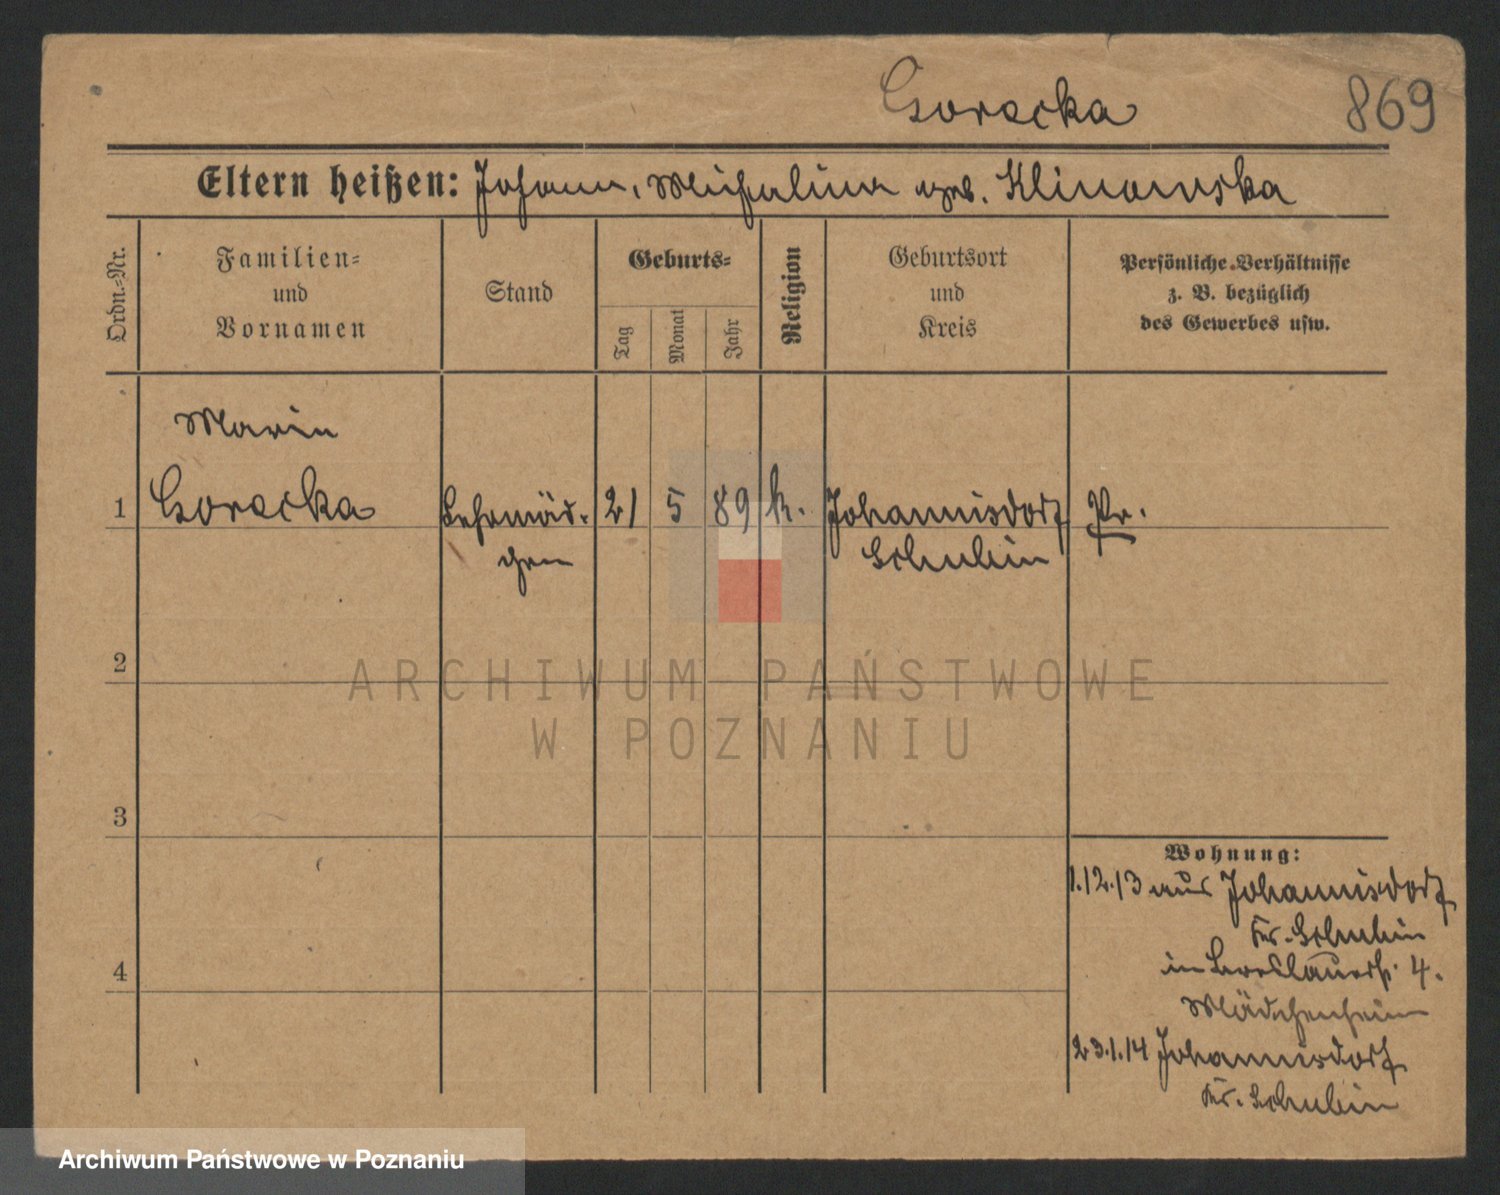 Goracka
869
Eltern heißen: Johann, Michalina geb. Klinowska
Ordn.-Nr.
Familien-
und
Vornamen
Stand
Geburts-
Tag
Monat
Jahr
Religion
Geburtsort
und
Kreis
Persönliche Verhältnisse
z. B. bezüglich
des Gewerbes usw.
Marie
1 Goracka Lehrmäd- 21 5 89 k. Johannisdorf Pr.
chen Schubin
2
3
4
Wohnung:
1.12.13 aus Johannisdorf
Kr. Schubin
in Breslauerst. 4.
Mädchenheim
23.1.14 Johannisdorf
Kr. Schubin
ARCHIWUM PAŃSTWOWE
W POZNANIU
Archiwum Państwowe w Poznaniu